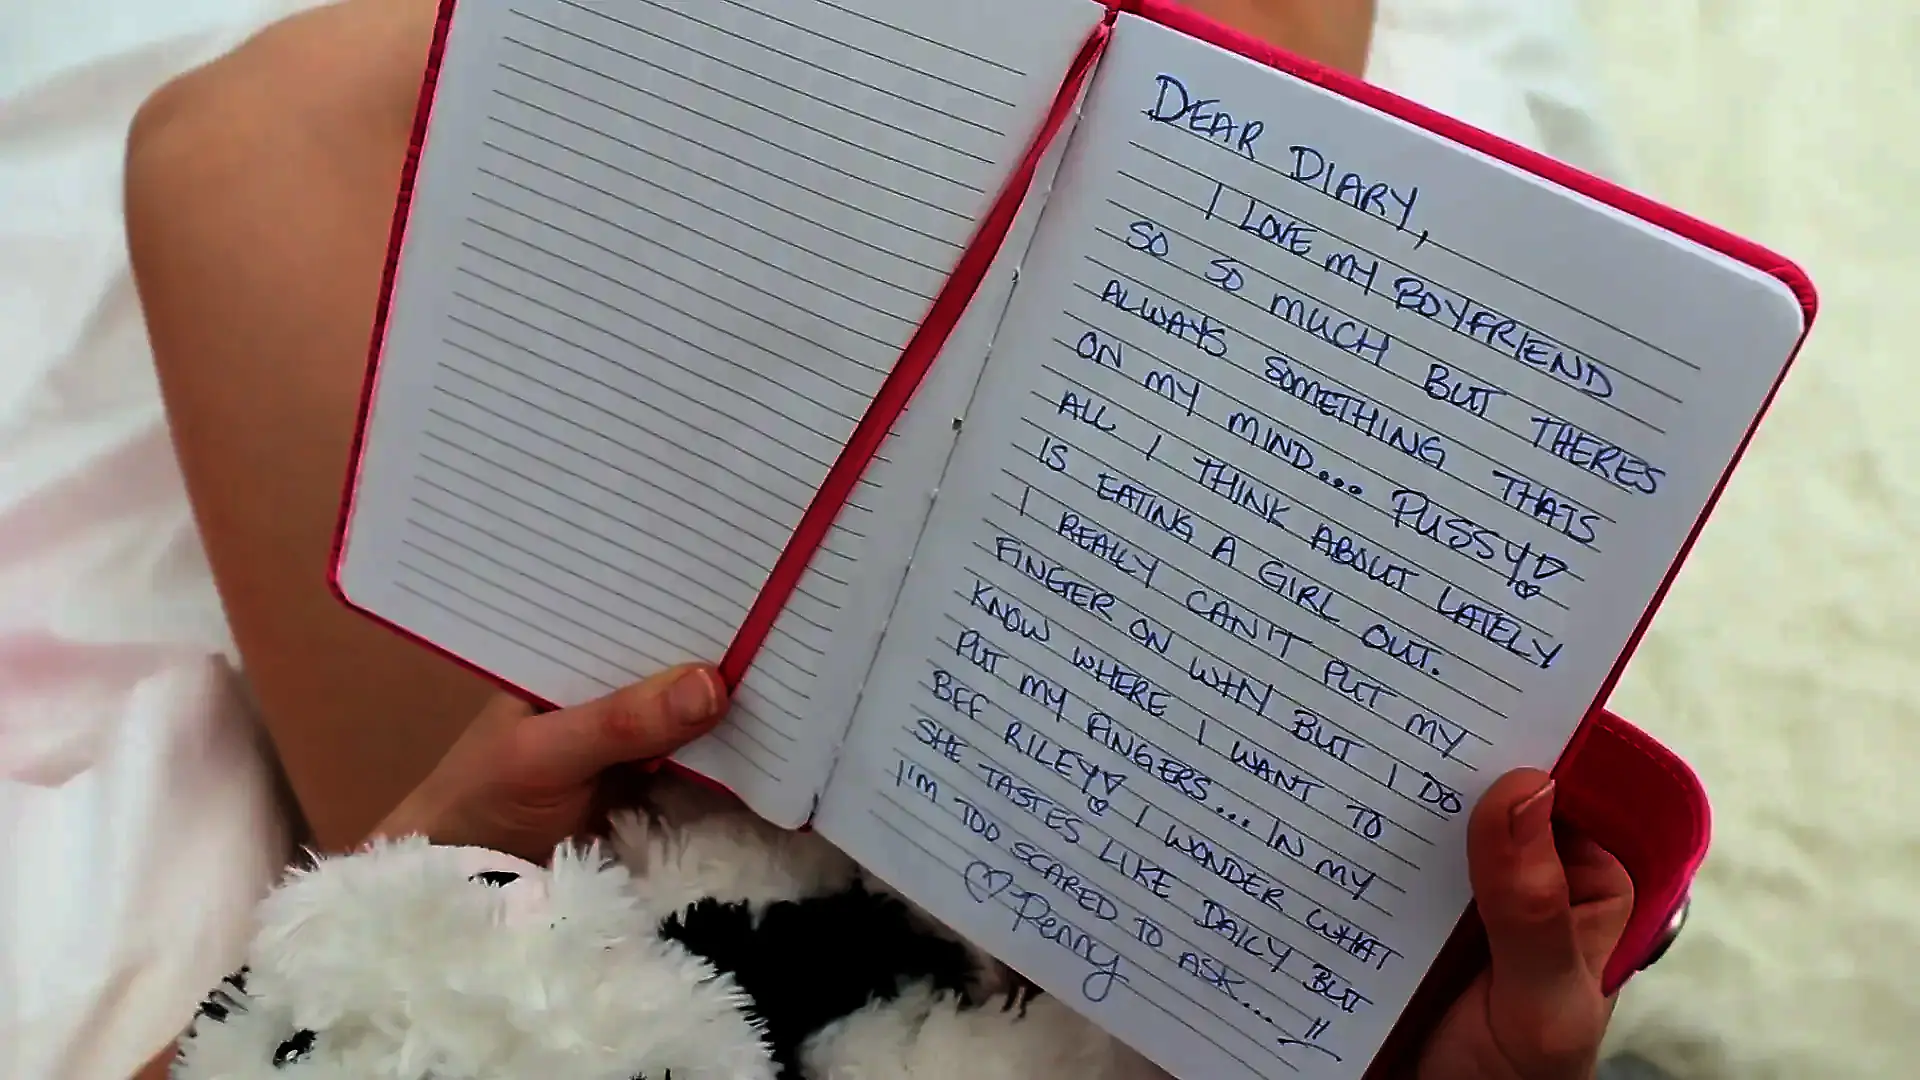 DEAR DIARY,
I LOVE MY BOYFRIEND
SO SO MUCH BUT THERES
ALWAYS SOMETHING THATS
ON MY MIND... PUSSY♡
ALL I THINK ABOUT LATELY
IS EATING A GIRL OUT.
I REALLY CAN'T PUT MY
FINGER ON WHY BUT I DO
KNOW WHERE I WANT TO
PUT MY FINGERS... IN MY
BFF RILEY♡ I WONDER WHAT
SHE TASTES LIKE DAILY BUT
I'M TOO SCARED TO ASK... !!
♡-Penny